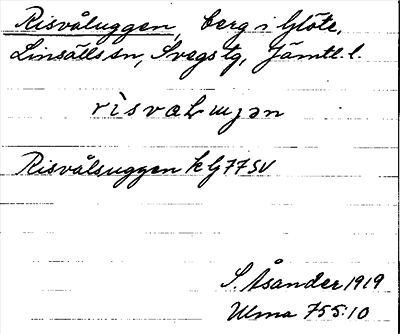 Risvåluggen, berg i Glöte,
Linsälls sn, Svegs tg, Jämtl. l.
Risvålsuggen k bj 77 SV
S. Åsander 1919
Ulma 755:10